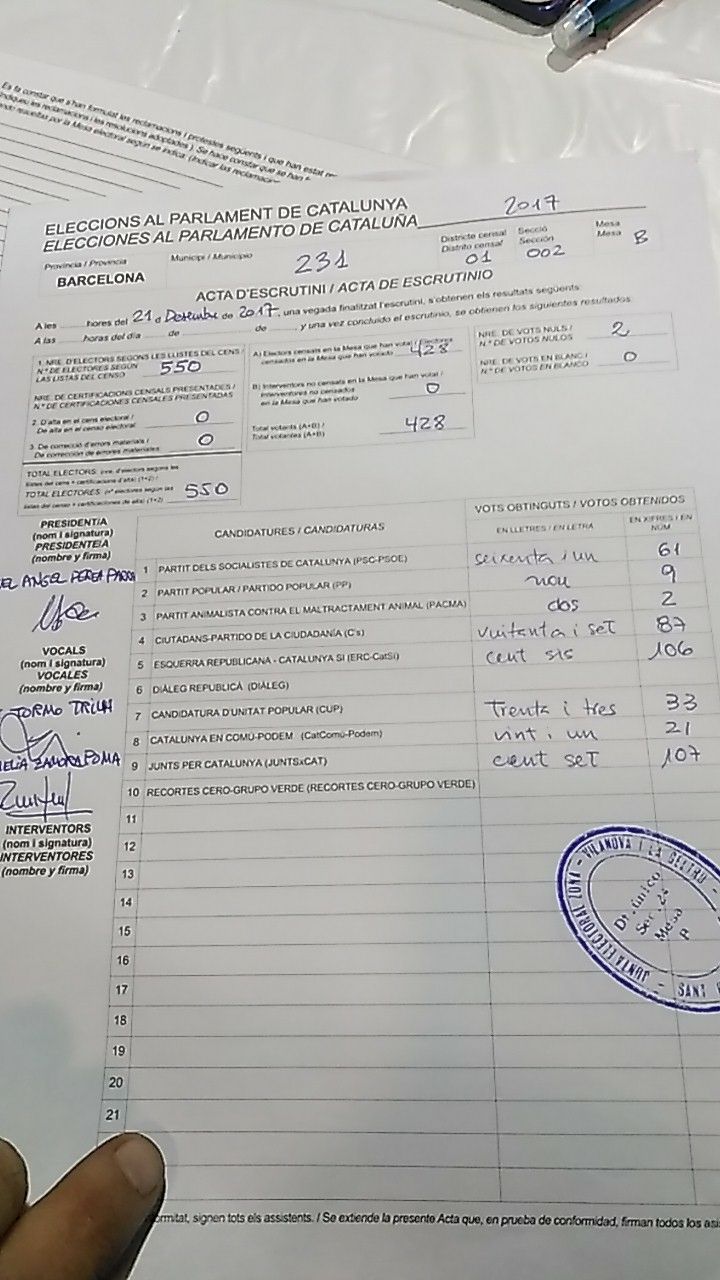 Es fa constar que s'han formulat les reclamacions i protestes següents i que han estat
(Indiqueu les reclamacions i les resolucions adoptades). Se hace constar que se han
resueltas por la Mesa electoral según se indica. (Indicar las
ELECCIONS AL PARLAMENT DE CATALUNYA
ELECCIONES AL PARLAMENTO DE CATALUÑA 2017
Província / Provincia
BARCELONA
Municipi / Municipio
231
Districte censal
Distrito censal
01
Secció
Sección
002
Mesa
Mesa
B
ACTA D'ESCRUTINI / ACTA DE ESCRUTINIO
A les hores del 21 d Desembre de 2017, una vegada finalitzat l'escrutini, s'obtenen els resultats següents:
A las horas del día de de , y una vez concluido el escrutinio, se obtienen los siguientes resultados:
1. NRE. D'ELECTORS SEGONS LES LLISTES DEL CENS /
N.º DE ELECTORES SEGÚN
LAS LISTAS DEL CENSO
550
NRE. DE CERTIFICACIONS CENSALS PRESENTADES /
N.º DE CERTIFICACIONES CENSALES PRESENTADAS
2. D'alta en el cens electoral /
De alta en el censo electoral
0
3. De correcció d'errors materials /
De corrección de errores materiales
0
TOTAL ELECTORS: (nre. d'electors segons les
llistes del cens + certificacions d'alta) (1+2) /
TOTAL ELECTORES: (nº electores según las
listas del censo + certificaciones de alta) (1+2)
550
A) Electors censats en la Mesa que han votat / Electores
censados en la Mesa que han votado
428
B) Interventors no censats en la Mesa que han votat /
Interventores no censados
en la Mesa que han votado
0
Total votants (A+B) /
Total votantes (A+B)
428
NRE. DE VOTS NULS /
N.º DE VOTOS NULOS
2
NRE. DE VOTS EN BLANC /
N.º DE VOTOS EN BLANCO
0
PRESIDENT/A
(nom i signatura)
PRESIDENTE/A
(nombre y firma)
EL ANGEL PEREA
VOCALS
(nom i signatura)
VOCALES
(nombre y firma)
TORMO TRILLA
ELIA ZAMORA POMA
INTERVENTORS
(nom i signatura)
INTERVENTORES
(nombre y firma)
CANDIDATURES / CANDIDATURAS
VOTS OBTINGUTS / VOTOS OBTENIDOS
EN LLETRES / EN LETRA
EN XIFRES / EN
NÚM
1 PARTIT DELS SOCIALISTES DE CATALUNYA (PSC-PSOE) seixenta i un 61
2 PARTIT POPULAR / PARTIDO POPULAR (PP) nou 9
3 PARTIT ANIMALISTA CONTRA EL MALTRACTAMENT ANIMAL (PACMA) dos 2
4 CIUTADANS-PARTIDO DE LA CIUDADANÍA (C's) vuitanta i set 87
5 ESQUERRA REPUBLICANA - CATALUNYA SÍ (ERC-CatSí) cent sis 106
6 DIÀLEG REPUBLICÀ (DIÀLEG)
7 CANDIDATURA D'UNITAT POPULAR (CUP) Trenta i tres 33
8 CATALUNYA EN COMÚ-PODEM (CatComú-Podem) vint i un 21
9 JUNTS PER CATALUNYA (JUNTSxCAT) cent set 107
10 RECORTES CERO-GRUPO VERDE (RECORTES CERO-GRUPO VERDE)
11
12
13
14
15
16
17
18
19
20
21
JUNTA ELECTORAL ZONA - VILANOVA I LA GELTRÚ - SANT
Dt. único
Sec. 2ª
Mesa
ormitat, signen tots els assistents. / Se extiende la presente Acta que, en prueba de conformidad, firman todos los